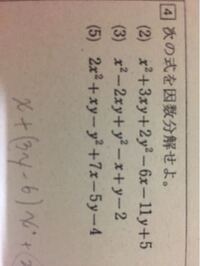 4 次の式を因数分解せよ。
(2) x²+3xy+2y²-6x-11y+5
(3) x²-2xy+y²-x+y-2
(5) 2x²+xy-y²+7x-5y-4
x+(3y-6)x+(2